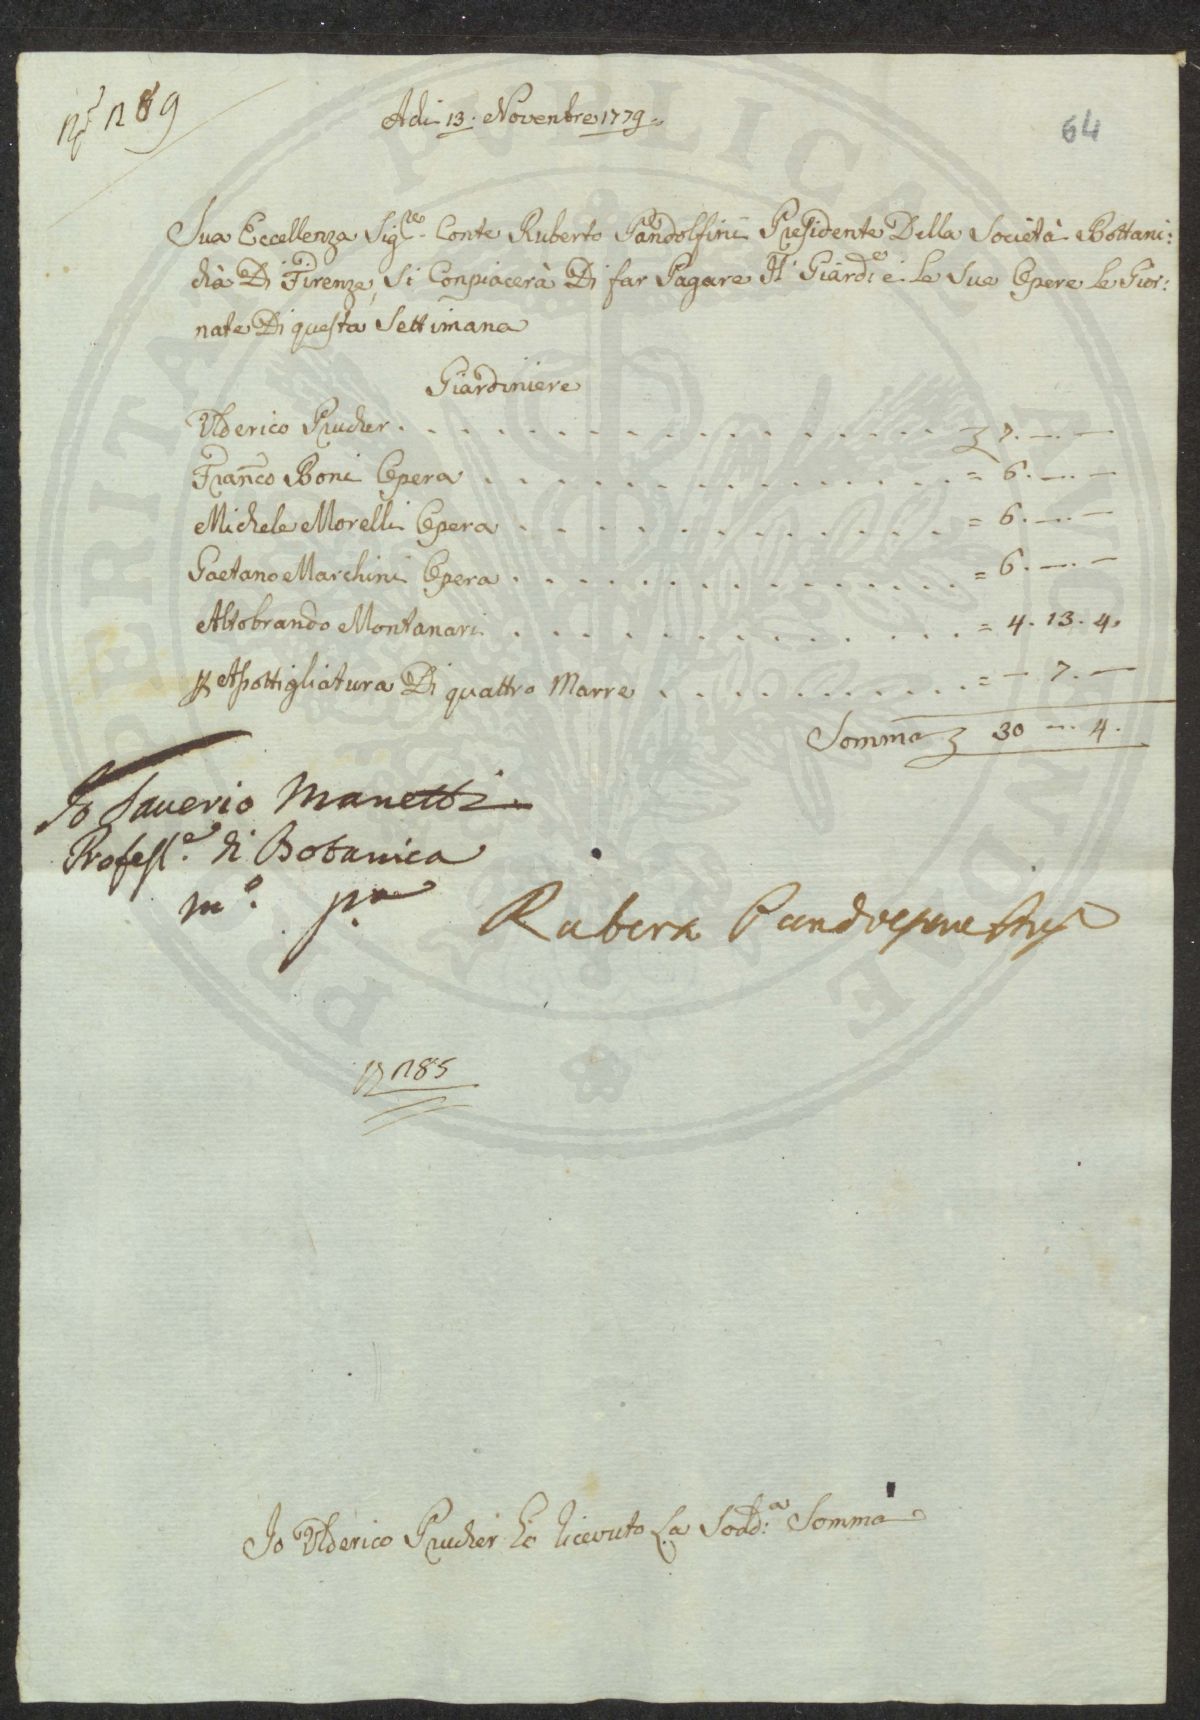 N 189
Adi 13. Novembre 1779.
64
Sua Eccellenza Sig.re Conte Ruberto Pandolfini Presidente Della Società Bottani:
chà Di Firenze, Si Conpiacerà Di far Pagare Il Giard:e e le Sue Opere le Gior:
nate Di questa Settimana
Giardiniere
Ulderico Prucher . . . . . . . . 7. — . —
Franco Boni Opera . . . . . . . . = 6. — . —
Michele Morelli Opera . . . . . . . . = 6. — . —
Gaetano Marchini Opera . . . . . . . . = 6. — . —
Altobrando Montanari . . . . . . . . = 4. 13. 4.
Apottigliatura Di quattro Marre . . . . . . . . = — 7. —
Somma 30 — . 4.
Io Saverio Manetti
Profess.e di Botanica
m.o p.a
Ruberto Pandolfini
185
Io Ulderico Prucher ho ricevuto La Sodd:a Somma
PROSPERITAS PUBLICAE